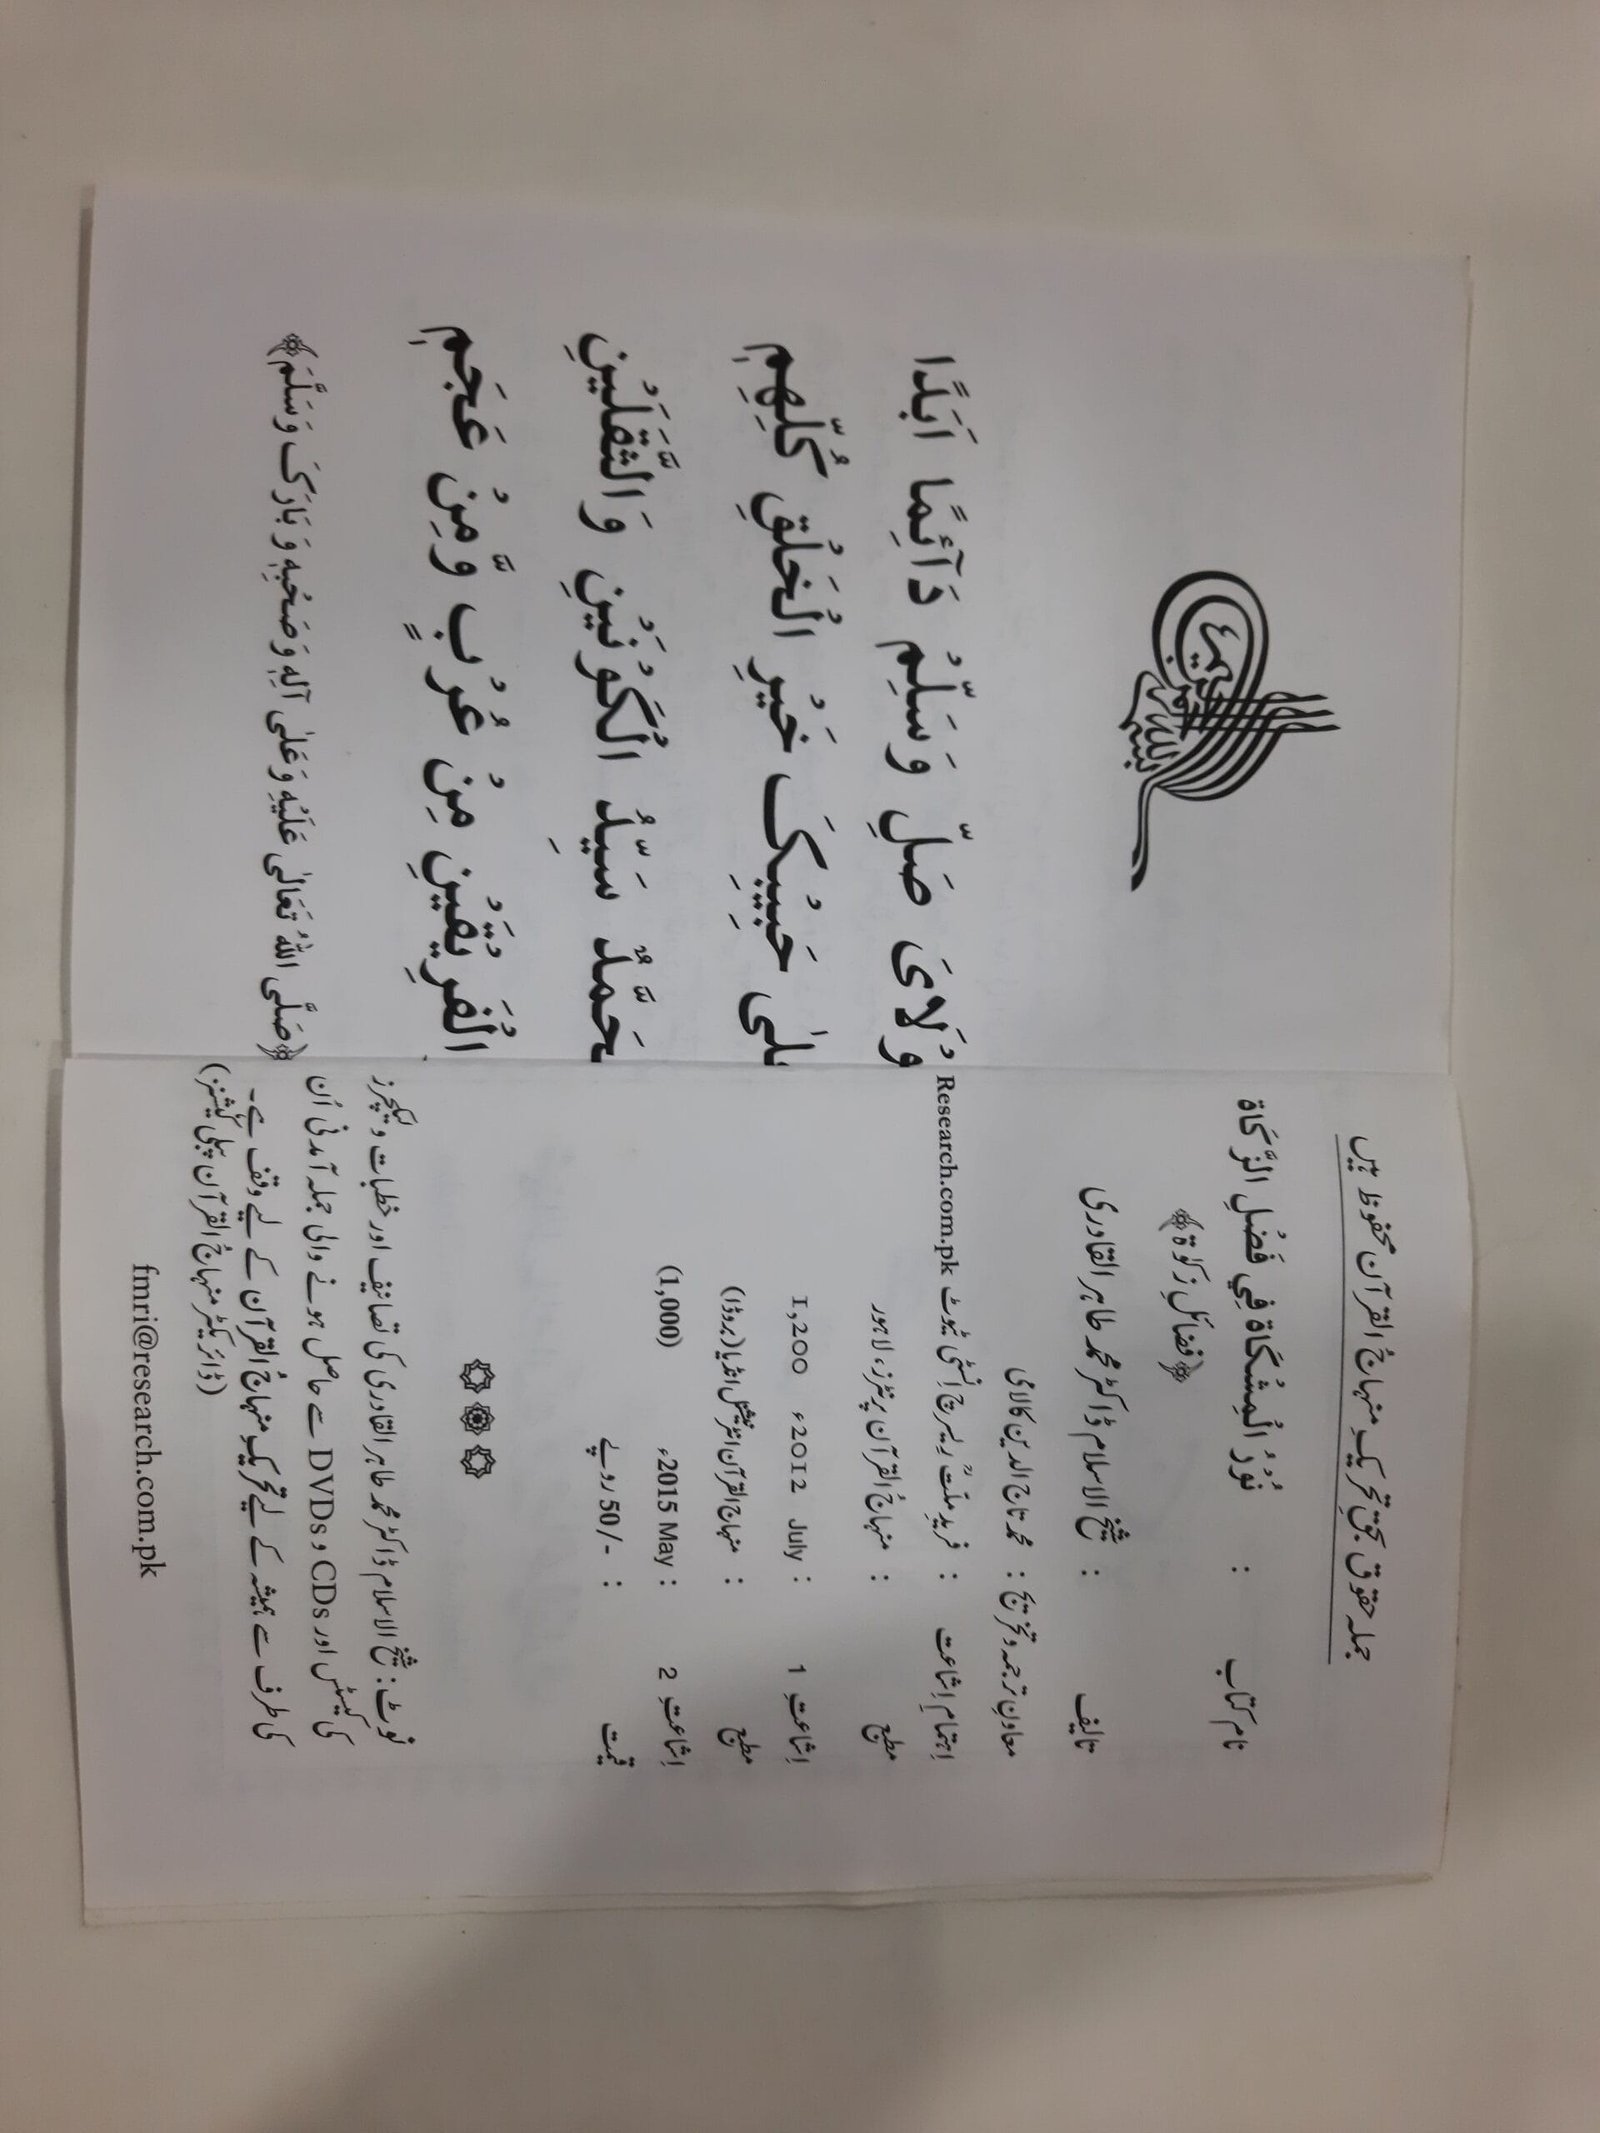 جملہ حقوق بحق تحریکِ منہاجُ القرآن محفوظ ہیں
نام کتاب : نُوْرُ الْمِشْكَاة فِي فَضْلِ الزَّكَاة
﴿فضائلِ زکوٰۃ﴾
تالیف : شیخ الاسلام ڈاکٹر محمد طاہر القادری
معاونِ ترجمہ و تخریج : محمد تاج الدین کالامی
اِہتمامِ اِشاعت : فریدِ ملتؒ رِیسرچ اِنسٹی ٹیوٹ Research.com.pk
مطبع : منہاجُ القرآن پرنٹرز، لاہور
اِشاعتِ 1 : July 2012ء 1,200
مطبع : منہاج القرآن انٹرنیشنل انڈیا (بروڈا)
اِشاعتِ 2 : May 2015ء (1,000)
قیمت : -/50 روپے
نوٹ: شیخ الاسلام ڈاکٹر محمد طاہر القادری کی تصانیف اور خطبات و لیکچرز
کی کیسٹس اور CDs و DVDs سے حاصل ہونے والی جملہ آمدنی اُن
کی طرف سے ہمیشہ کے لیے تحریکِ منہاجُ القرآن کے لیے وقف ہے۔
(ڈائریکٹر منہاجُ القرآن پبلی کیشنز)
fmri@research.com.pk
بسم الله الرحمن الرحيم
وْلَایَ صَلِّ وَسَلِّمْ دَآئِمًا اَبَدًا
لٰی حَبِیْبِکَ خَیْرِ الْخَلْقِ کُلِّھِمِ
حَمَّدٌ سَیِّدُ الْکَوْنَیْنِ وَالثَّقَلَیْنِ
الْفَرِیْقَیْنِ مِنْ عُرْبٍ وَّمِنْ عَجَمِ
﴿صَلَّی اللهُ تَعَالٰی عَلَیْهِ وَعَلٰی آلِهٖ وَصَحْبِهٖ وَبَارَکَ وَسَلَّمَ﴾